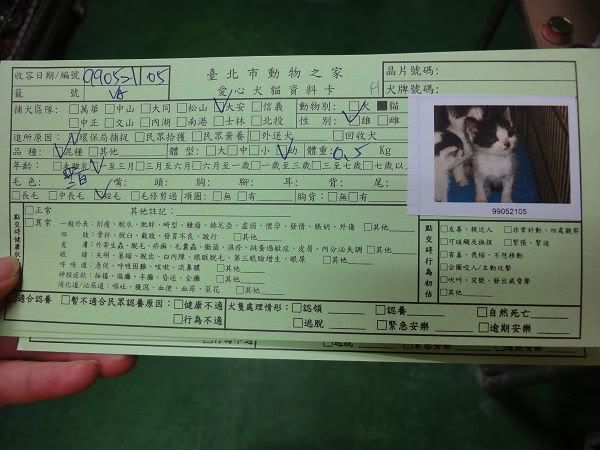 收容日期/編號 990521 05 臺北市動物之家 晶片號碼:
籠號 愛心犬貓資料卡 犬牌號碼:
捕犬區隊: □萬華□中山□大同□松山☑大安□信義 動物別: □犬■貓
□中正□文山□內湖□南港□士林□北投 性別: ☑雄□雌
進所原因: ☑環保局捕捉 □民眾拾獲 □民眾棄養 □外送犬 □回收犬
品種: ☑混種□其他 體型: □大□中□小☑幼 體重: 0.5 Kg
年齡: □未離乳☑至三月□三月至六月□六月至一歲□一歲至三歲□三歲至七歲□七歲以上
毛色: 嘴: 頭: 胸: 腳: 耳: 背: 尾:
□長毛 □中長毛 ☑短毛 □毛修剪過 項圈: □無□有 胸背: □無□有
99052105
點交時健康狀
□正常 其他註記:
□異常
一般外表: 削瘦、脫水、肥胖、畸型、腫瘤、赫尼亞、虛弱、懷孕、發情、脹奶、外傷 □其他
四肢: 骨折、脫臼、截肢、發育不良、跛行 □其他
皮膚: 外寄生蟲、脫毛、疥癬、毛囊蟲、黴菌、濕疹、跳蚤過敏症、皮屑、內分泌失調 □其他
眼睛: 失明、萎縮、脫出、白內障、眼瞼脫毛、第三眼瞼增生、眼屎 □其他
呼吸道: 急促、呼吸困難、咳嗽、流鼻膿 □其他
神經症狀: 抽搐、偏癱、半癱、昏迷、全癱 □其他
消化道/泌尿道: 嘔吐、腹瀉、血便、血尿、菜花 □其他
點交時行為初估
□友善、親近人 □非常好動、四處觀察
□可碰觸及撫摸 □緊張、緊迫
□害羞、畏縮、不想移動
□企圖咬人/主動攻擊
□吠叫、哭號、發出威脅聲
□其他
□適合認養 □暫不適合民眾認養原因: □健康不適 犬隻處理情形: □認領 □認養 □自然死亡
□行為不適 □逃脫 □緊急安樂 □逾期安樂